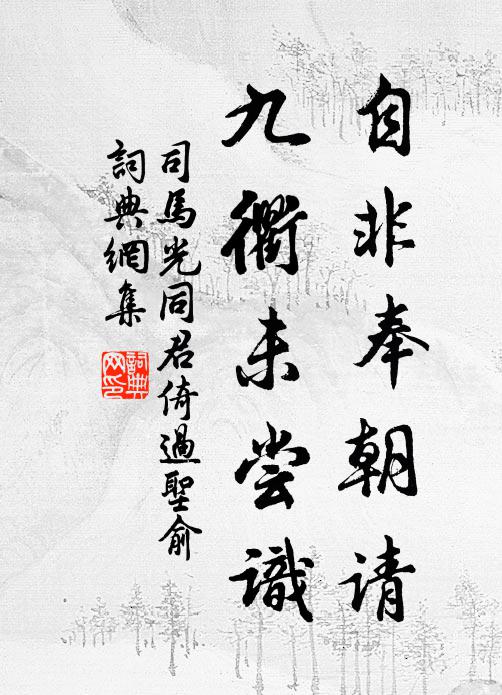 自非奉朝請
九衢未尝識
司馬光同君倚過聖俞
詞典網集
詞典
网印